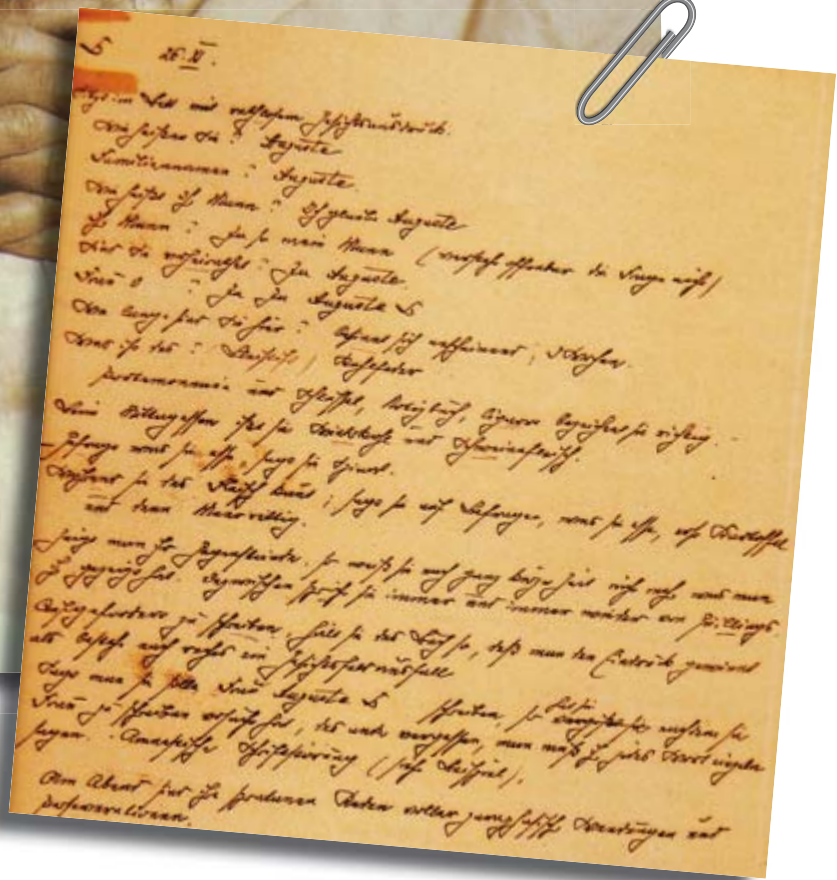 D 26 XI.
Sitzt im Bett mit rathlosem Gesichtsausdruck.
Wie heißen Sie? Auguste
Familiennamen? Auguste.
Wie heißt ihr Mann? Ich glaube Auguste
Ihr Mann? Ja so mein Mann (versteht offenbar die Frage nicht)
Sind Sie verheirathet? Zu Auguste.
Frau D? Ja zu Auguste D
Wie lange sind Sie hier? besinnt sich anscheinend, 3 Wochen.
Was ist das? Bleistift, Stahlfeder
Portemonnaie und Schlüssel, Notizbuch, Cigarre bezeichnet sie richtig.
Beim Mittagessen ißt sie Weißkohl und Schweinefleisch.
Gefragt was sie esse, sagt sie Spinat.
Während sie das Fleisch kaut, sagt sie auf Befragen, was sie esse, erst Kartoffel
und dann Meerrettig.
Zeigt man ihr Gegenstände, so weiß sie nach ganz kurzer Zeit nicht mehr was man
ihr gezeigt hat. Dazwischen spricht sie immer und immer wieder von Zwillings.
Aufgefordert zu schreiben, hält sie das Buch so, daß man den Eindruck gewinnt
als bestehe nach rechts ein Gesichtsfeldausfall
Sagt man sie solle Frau Auguste D schreiben, so nachdem sie
Frau zu schreiben versucht hat, das andere vergessen, man muß ihr jedes Wort
sagen. Amnestische Schriftstörung (siehe Beispiel).
Am Abend sind ihre spontanen Reden voller paraphasischer Wendungen und
Perseverationen.